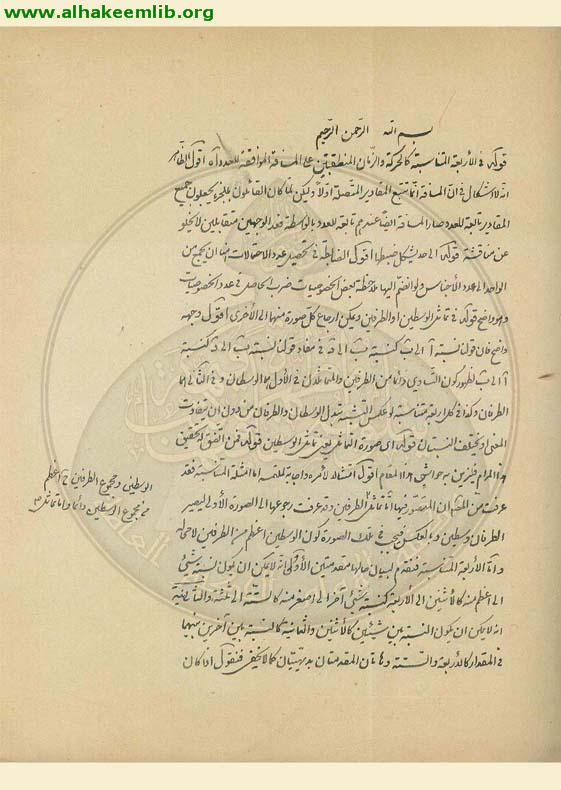 www.alhakeemlib.org
بسم الله الرحمن الرحيم
قوله في الأربعة المتناسبة كالحركة والزمان المنطبقين على المسافة الموافقة للعدد اه اقول الظاهر
انه لا اشكال في ان المسافة انما تتبع المقادير المتصلة اولا ولكن لما كان القائلون بالجزء يجعلون جميع
المقادير تابعة للعدد صار المسافة ايضا عندهم تابعة للعدد بالواسطة فعد الوجهين متقابلين لا يخلو
عن مناقشة قوله الى حد يشكل ضبطها اقول الضابطة في تحصيل عدد الاحتمالات اما ان يجمع من
الواحد الى عدد الأجناس ولو انضم اليها ملاحظة بعض الخصوصيات ضرب الحاصل في عدد الخصوصيات
وهو واضح قوله في تماثل الوسطين او الطرفين ويمكن ارجاع كل صورة منهما الى الأخرى اقول وجهه
واضح فان قولنا نسبة آ الى ب كنسبة ب الى د في مفاد قولنا نسبة ب الى د كنسبة
آ الى ب لظهور كون التساوي دائما من الطرفين والمتماثلان في الأول هما الوسطان وفي الثاني هما
الطرفان وكذا في كل اربعة متناسبة لو عكس التشبيه تبدل الوسطان والطرفان من دون ان يتفاوت
المعنى او يختلف النسبتان قوله اي صورة التماثل يعني تماثل الوسطين قوله فمن اتفق له تحقيق
هذا المرام فليزين به حواشي هذا المقام اقول امتثالا لأمره واجابة لملتمسه اما المثلثة المتناسبة فقد
عرفت من المقدم ان المتصور فيها اما تماثل الطرفين وقد عرفت رجوعها الى الصورة الأولى بتصيير
الطرفان وسطين وبالعكس فيجب في تلك الصورة كون الوسطين اعظم من الطرفين لا محالة
واما الأربعة المتناسبة فنقدم لبيان حالها مقدمتين الأولى انه لا يمكن ان يكون نسبة شيء
الى اعظم منه كالأثنين الى الأربعة كنسبة شيء آخر الى اصغر منه كالستة الى ثلثة والثانية
انه لا يمكن ان يكون النسبة بين شيئين كالأثنين والثمانية كالنسبة بين آخرين بينهما
في المقدار كالأربعة والستة وهاتان المقدمتان بديهيتان كما لا يخفى فنقول اذا كان
الوسطين ومجموع الطرفين اعظم
من مجموع الوسطين دائما